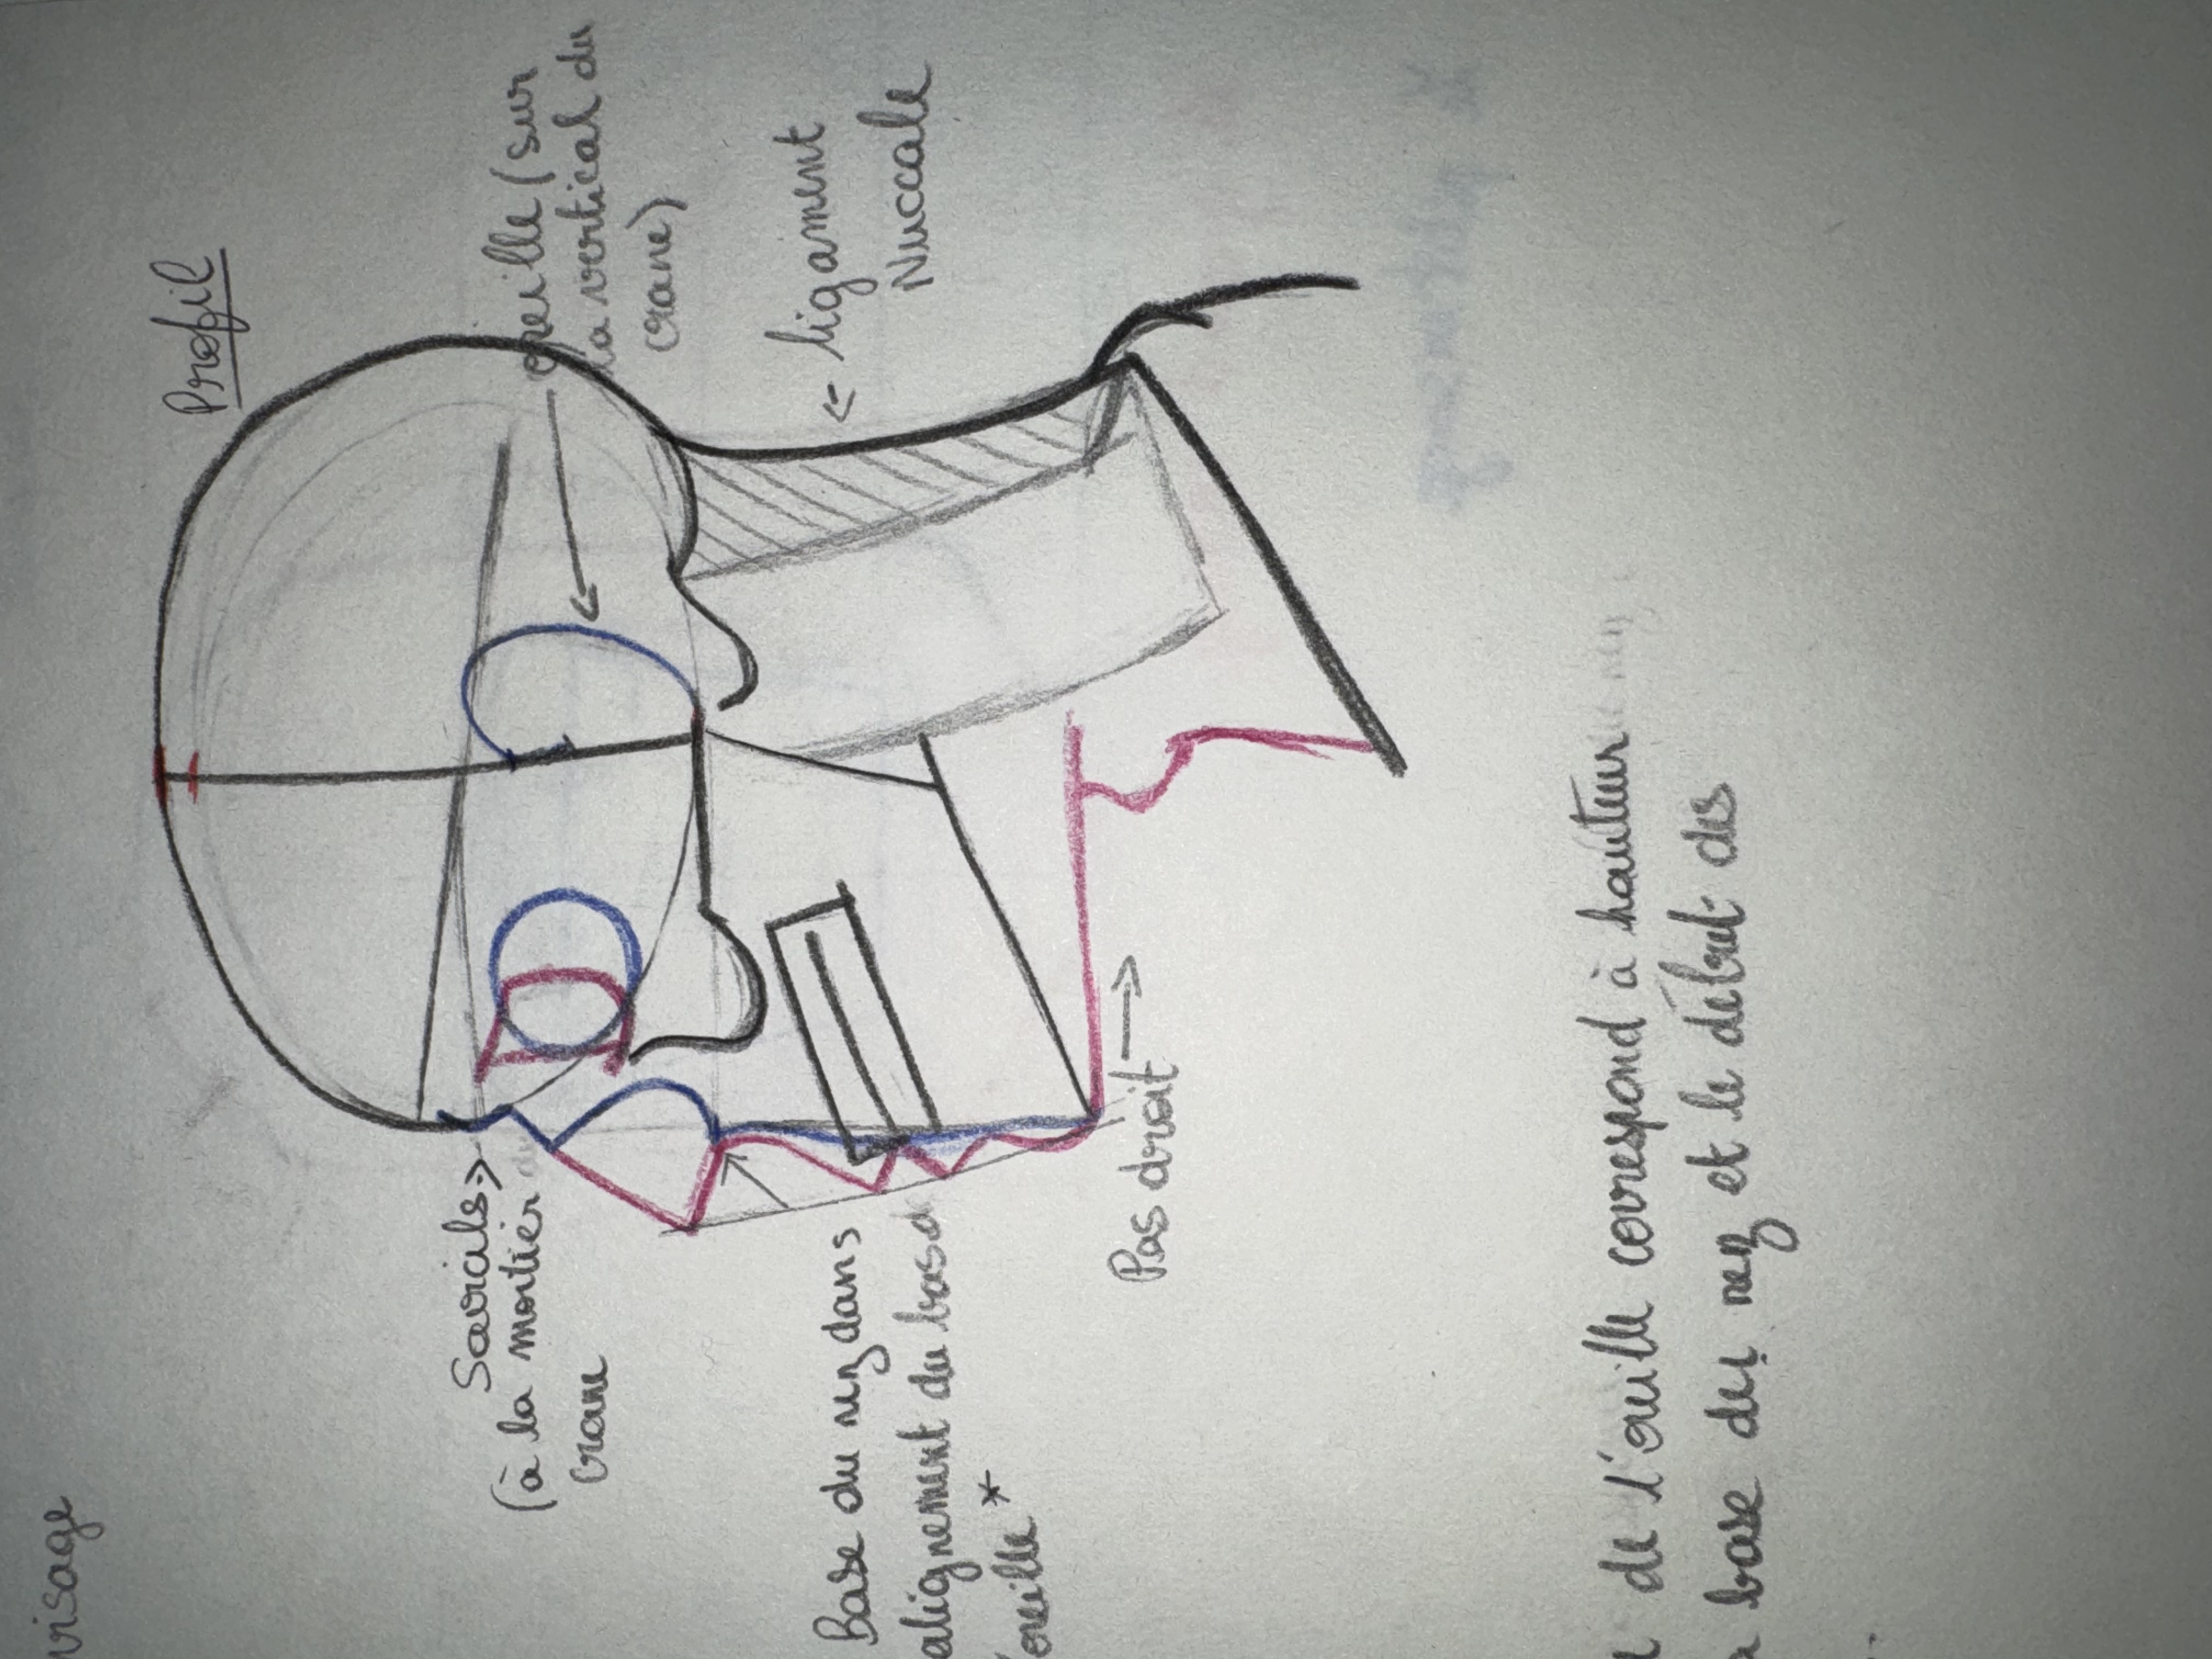 visage
Profil
oreille (sur
la vertical du
crane)
Sourcils
(à la moitier du
crane
ligament
Nuccale
Base du nez dans
alignement du bas d
'oreille *
Pas droit
de l'oreille correspond à hauteur
base du nez et le début des